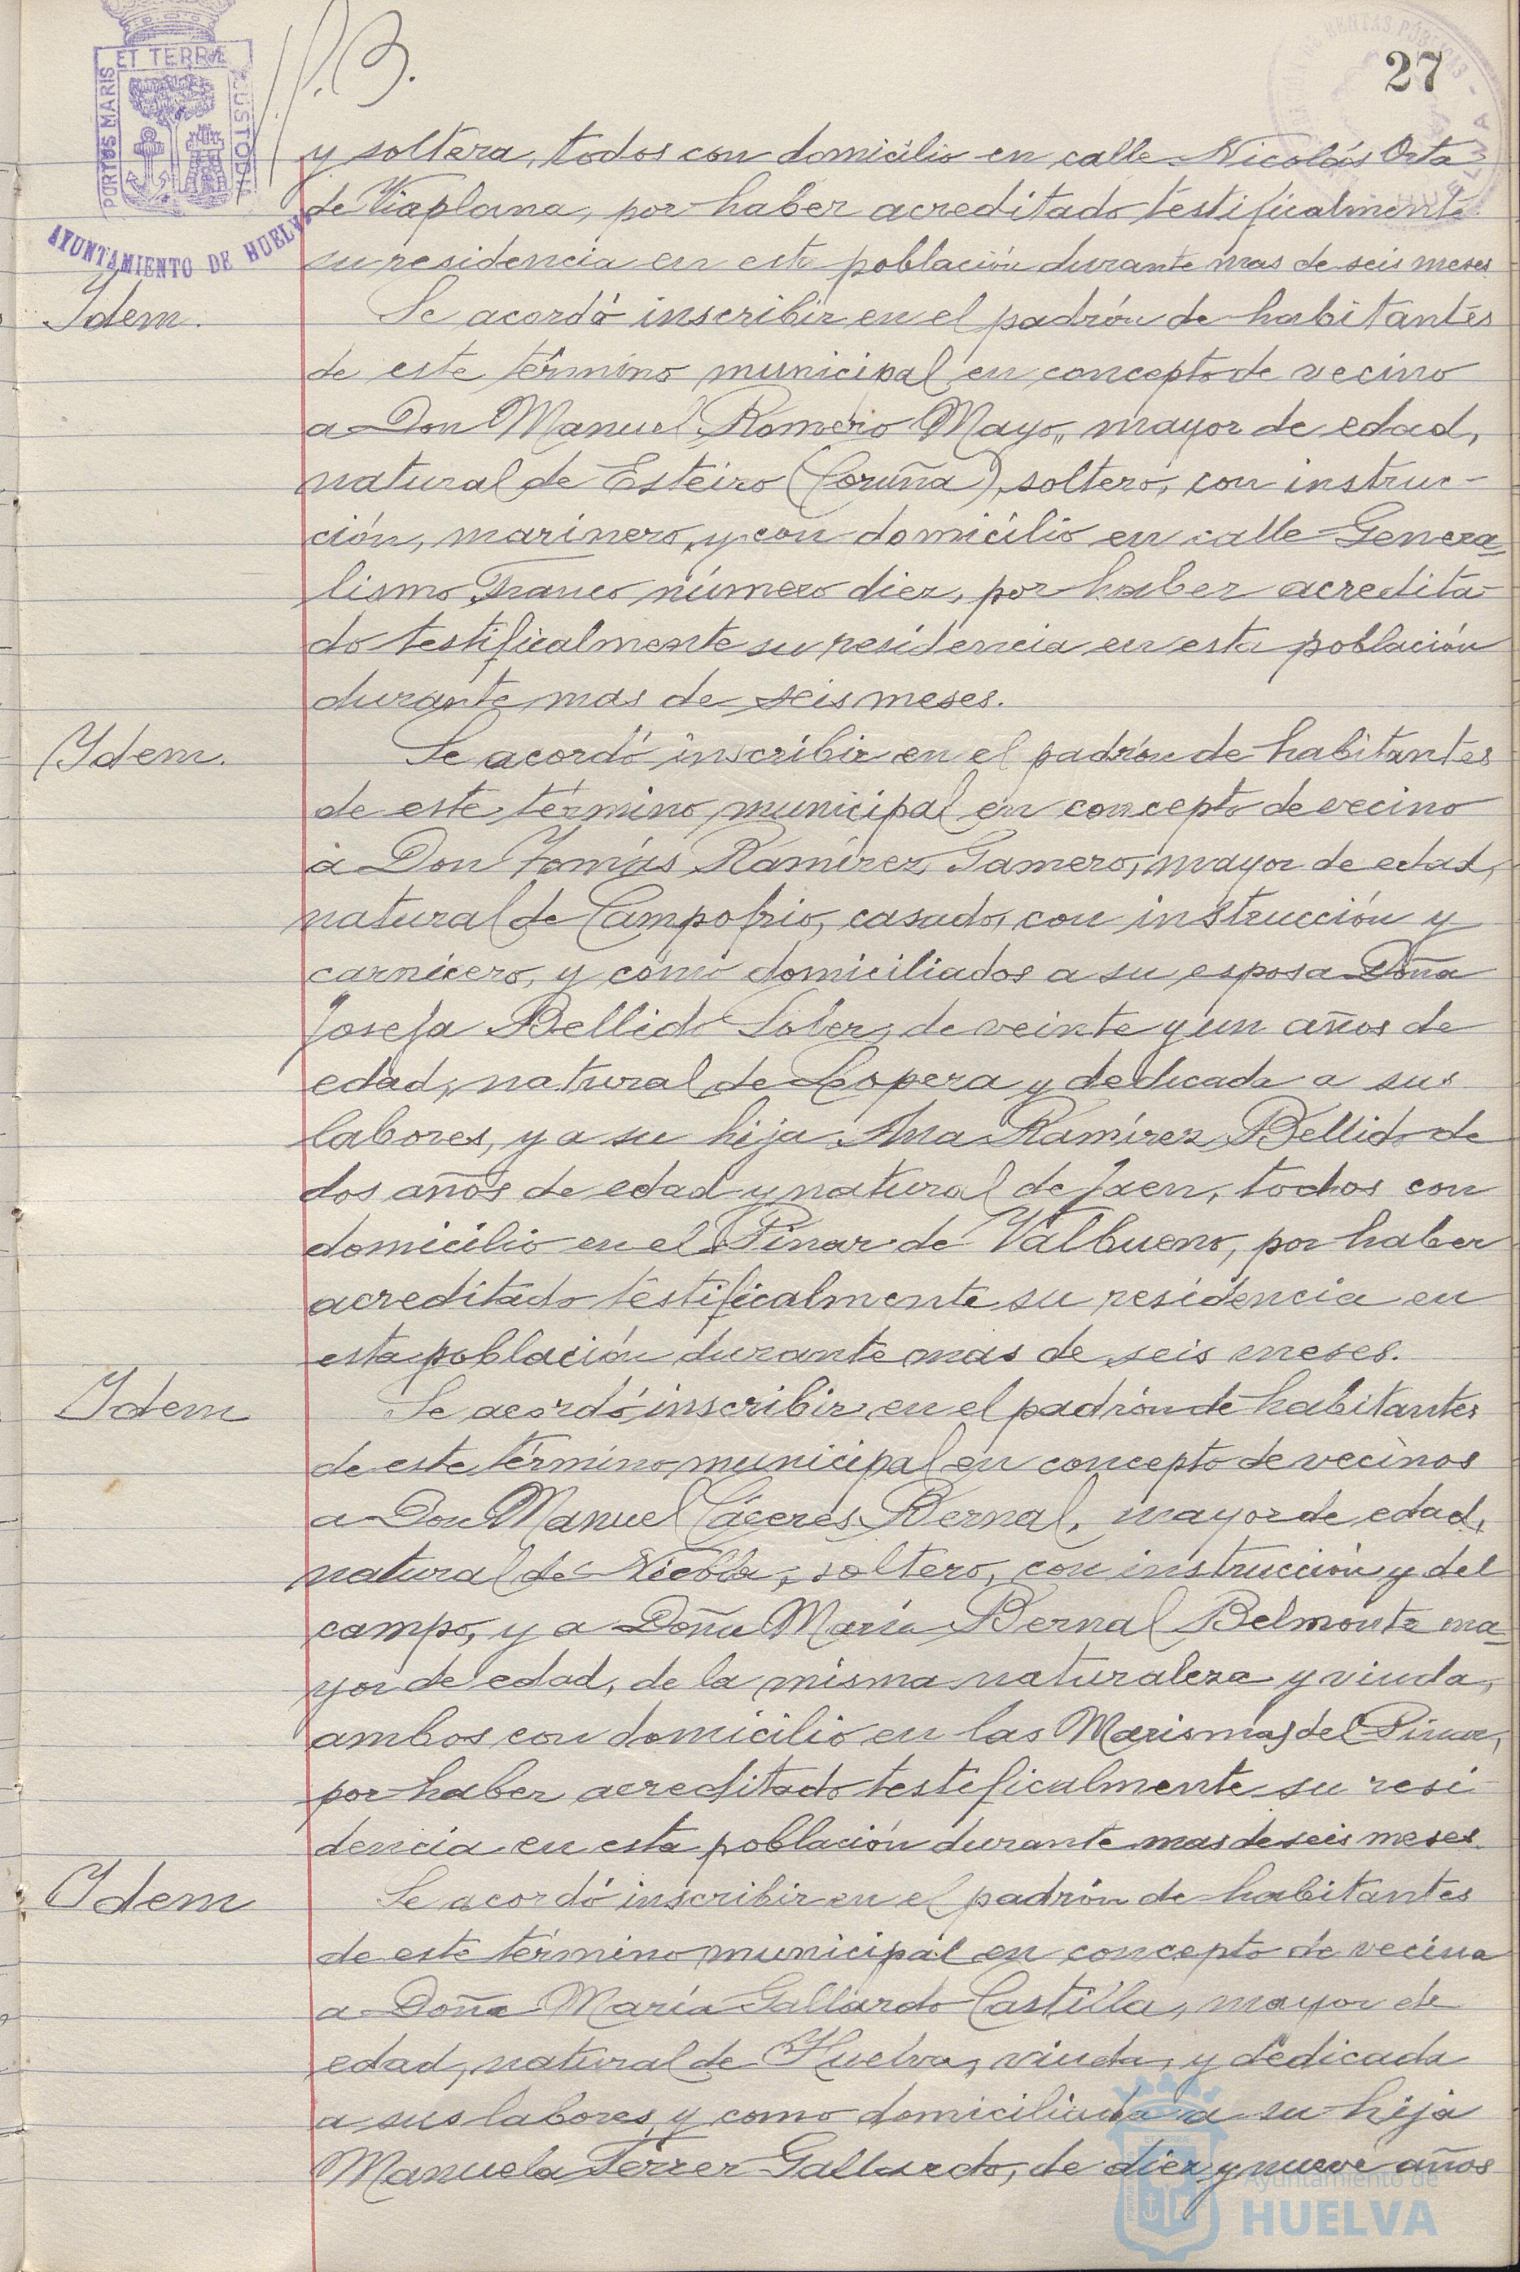 27
PORTUS MARIS ET TERRÆ CUSTODIA
AYUNTAMIENTO DE HUELVA
y soltera, todos con domicilio en calle Nicolás Orta
de Viaplana, por haber acreditado testificalmente
su residencia en esta población durante mas de seis meses
Idem. Se acordó inscribir en el padrón de habitantes
de este término municipal en concepto de vecino
a Don Manuel Romero Mayo, mayor de edad,
natural de Esteiro (Coruña), soltero, con instruc-
ción, marinero, y con domicilio en calle Genera-
lismo Franco número diez, por haber acredita-
do testificalmente su residencia en esta población
durante mas de seis meses.
Idem. Se acordó inscribir en el padrón de habitantes
de este término municipal en concepto de vecino
a Don Tomás Ramírez Gamero, mayor de edad,
natural de Campofrio, casado, con instrucción y
carnicero, y como domiciliados a su esposa Doña
Josefa Bellido Sober, de veinte y un años de
edad, natural de Lopera y dedicada a sus
labores, y a su hija Ana Ramírez Bellido de
dos años de edad y natural de Jaen, todos con
domicilio en el Pinar de Valbueno, por haber
acreditado testificalmente su residencia en
esta población durante mas de seis meses.
Idem Se acordó inscribir en el padrón de habitantes
de este término municipal en concepto de vecinos
a Don Manuel Cáceres Bernal, mayor de edad,
natural de Niebla, soltero, con instrucción y del
campo, y a Doña María Bernal Belmonte ma-
yor de edad, de la misma naturaleza y viuda,
ambos con domicilio en las Marismas del Pinar,
por haber acreditado testificalmente su resi
dencia en esta población durante mas de seis meses.
Idem Se acordó inscribir en el padrón de habitantes
de este término municipal en concepto de vecina
a Doña María Gallardo Castilla, mayor de
edad, natural de Huelva, viuda, y dedicada
a sus labores, y como domiciliada a su hija
Manuela Ferrer Gallardo, de diez y nueve años
Ayuntamiento de
HUELVA